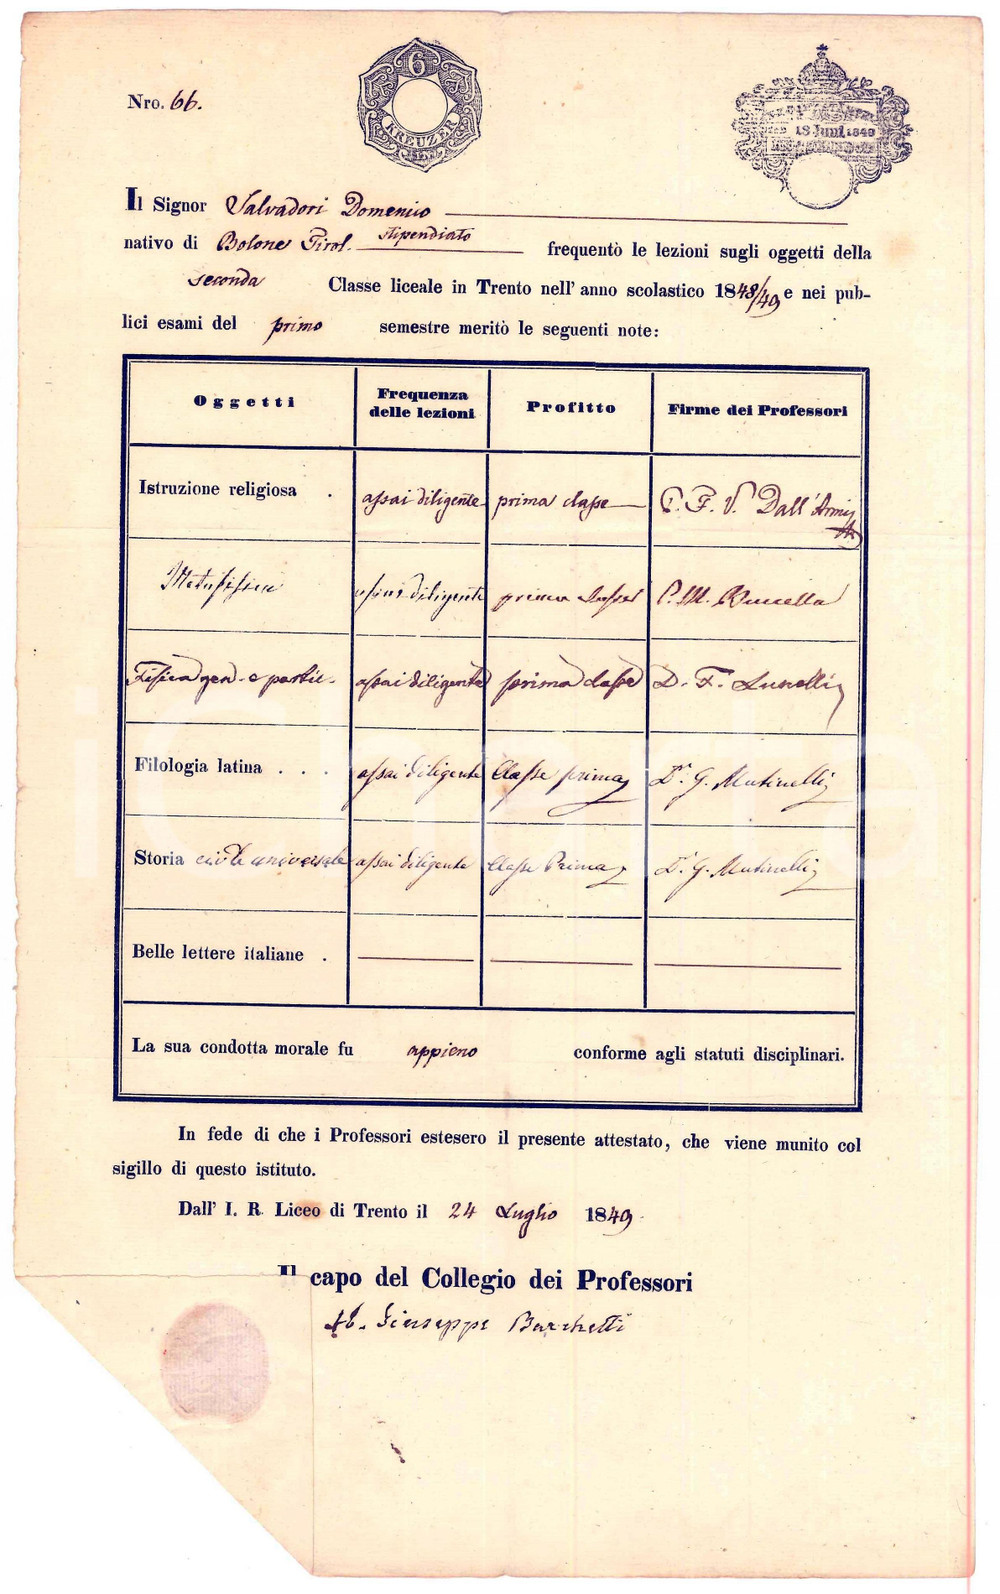 Nro. 66.
6
KREUZER
18 Juni 1849
Il Signor Salvadori Domenico
nativo di Bolone Tirol. stipendiato frequentò le lezioni sugli oggetti della
seconda Classe liceale in Trento nell' anno scolastico 1848/49 e nei pub-
lici esami del primo semestre meritò le seguenti note:
Oggetti
Frequenza
delle lezioni
Profitto
Firme dei Professori
Istruzione religiosa . assai diligente prima classe P. F. V. Dall'Armi
Metafisica assai diligente prima classe P. M.
Fisica gen. e partic. assai diligente prima classe D. F. Lunelli
Filologia latina . . . assai diligente Classe prima Dr. G. Mutinelli
Storia civile universale assai diligente Classe Prima Dr. G. Mutinelli
Belle lettere italiane .
La sua condotta morale fu appieno conforme agli statuti disciplinari.
In fede di che i Professori estesero il presente attestato, che viene munito col
sigillo di questo istituto.
Dall' I. R. Liceo di Trento il 24 Luglio 1849.
Il capo del Collegio dei Professori
Ab. Giuseppe Barchetti